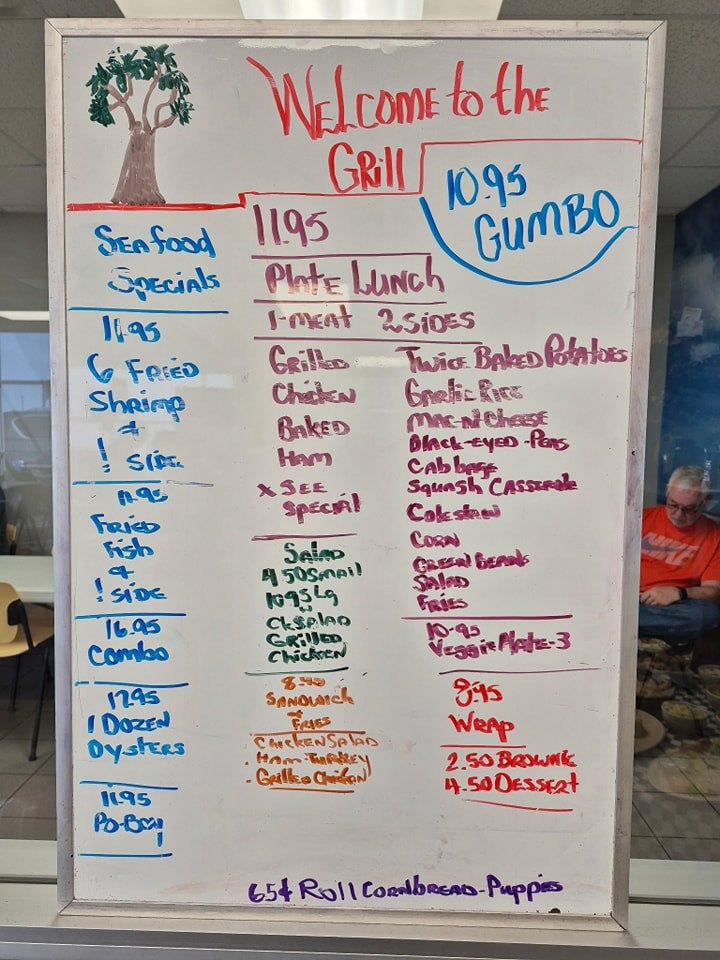 Welcome to the
Grill
10.95
Gumbo
Seafood
Specials
11.95
6 Fried
Shrimp
+
1 Side
11.95
Fried
Fish
+
1 Side
16.95
Combo
17.95
1 Dozen
Oysters
11.95
Po-Boy
11.95
Plate Lunch
1-meat 2 sides
Grilled
Chicken
Baked
Ham
x See
Special
Twice Baked Potatoes
Garlic Rice
Mac-N-Cheese
Black-eyed-Peas
Cabbage
Squash Casserole
Coleslaw
Corn
Green Beans
Salad
Fries
10.95
Veggie Plate-3
Salad
4.50 Small
10.95 Lg
Ck Salad
Grilled
Chicken
Sandwich
+
Fries
Chicken Salad
. Ham-Turkey
. Grilled Chicken
8.95
Wrap
2.50 Brownie
4.50 Dessert
65¢ Roll Cornbread-Puppies
NIKE